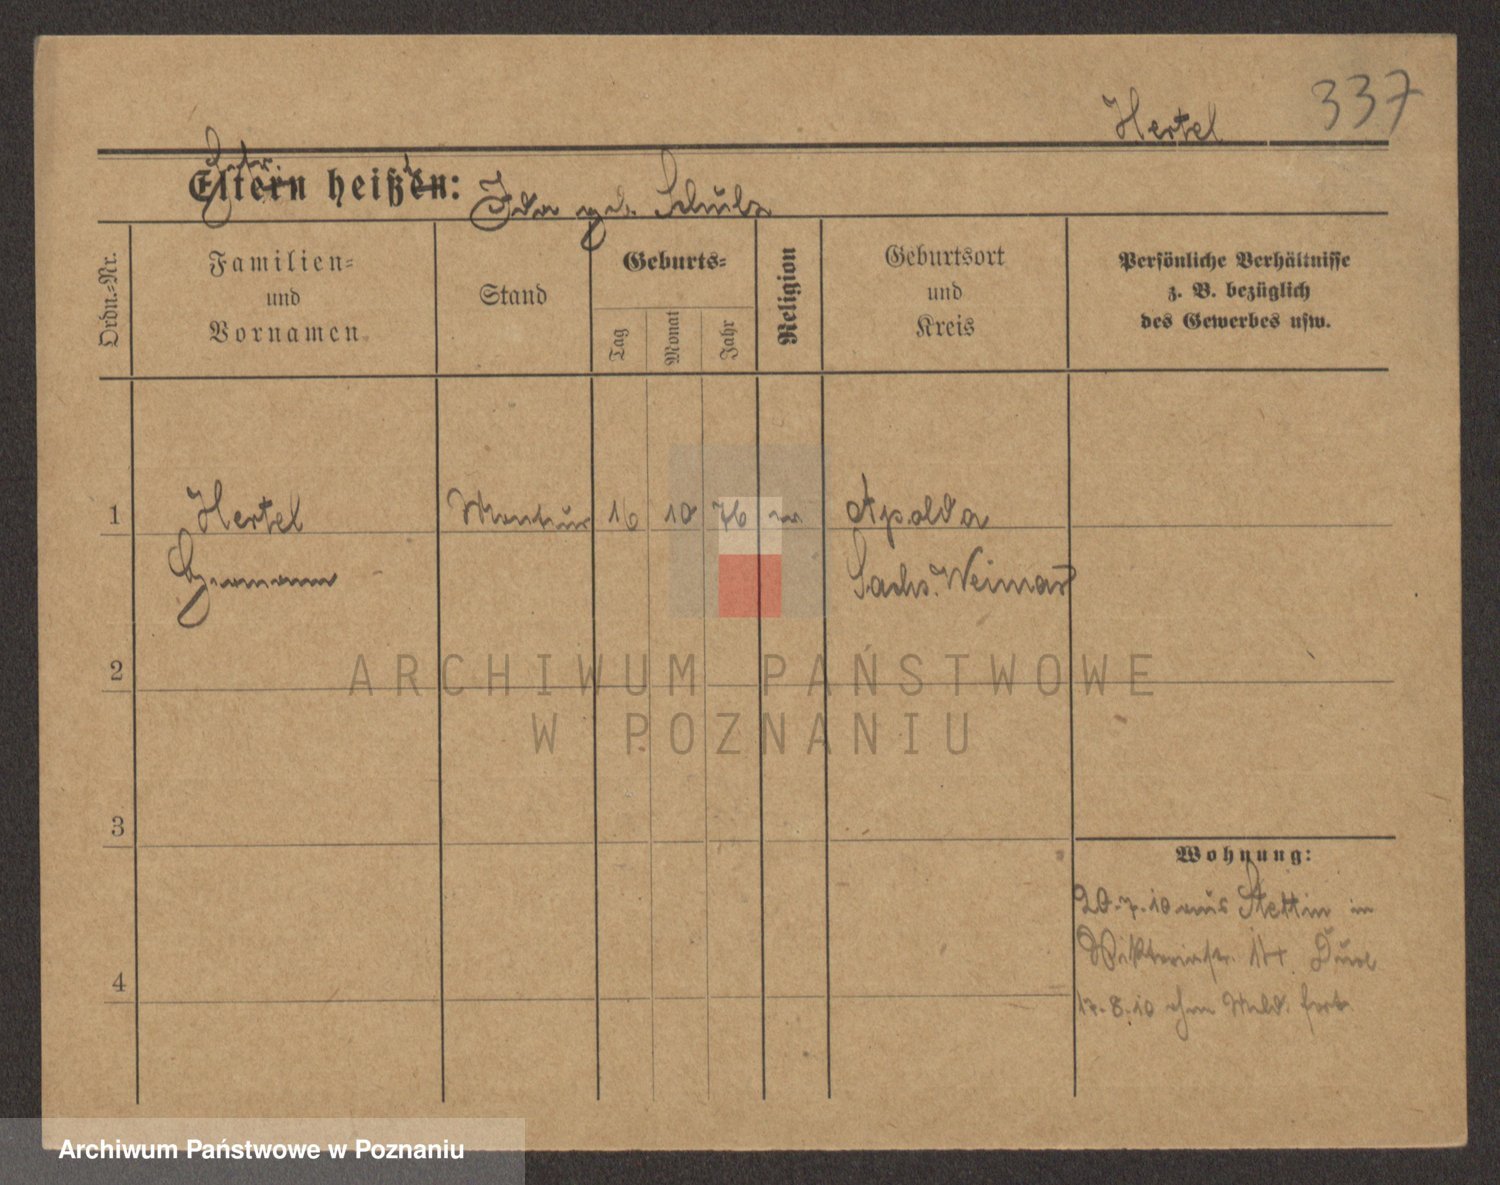 337
Hertel
Eltern heißen: Ida geb. Schulz
Ordn.-Nr.
Familien-
und
Vornamen
Stand
Geburts-
Tag
Monat
Jahr
Religion
Geburtsort
und
Kreis
Persönliche Verhältnisse
z. B. bezüglich
des Gewerbes usw.
1 Hertel Monteur 16 10 76 Apolda
Hermann Sachs. Weimar
2
3
4
Wohnung:
20.7.10 aus Stettin in
Viktoriastr. 14
17.8.10 ohne Meld. fort
ARCHIWUM PAŃSTWOWE
W POZNANIU
Archiwum Państwowe w Poznaniu